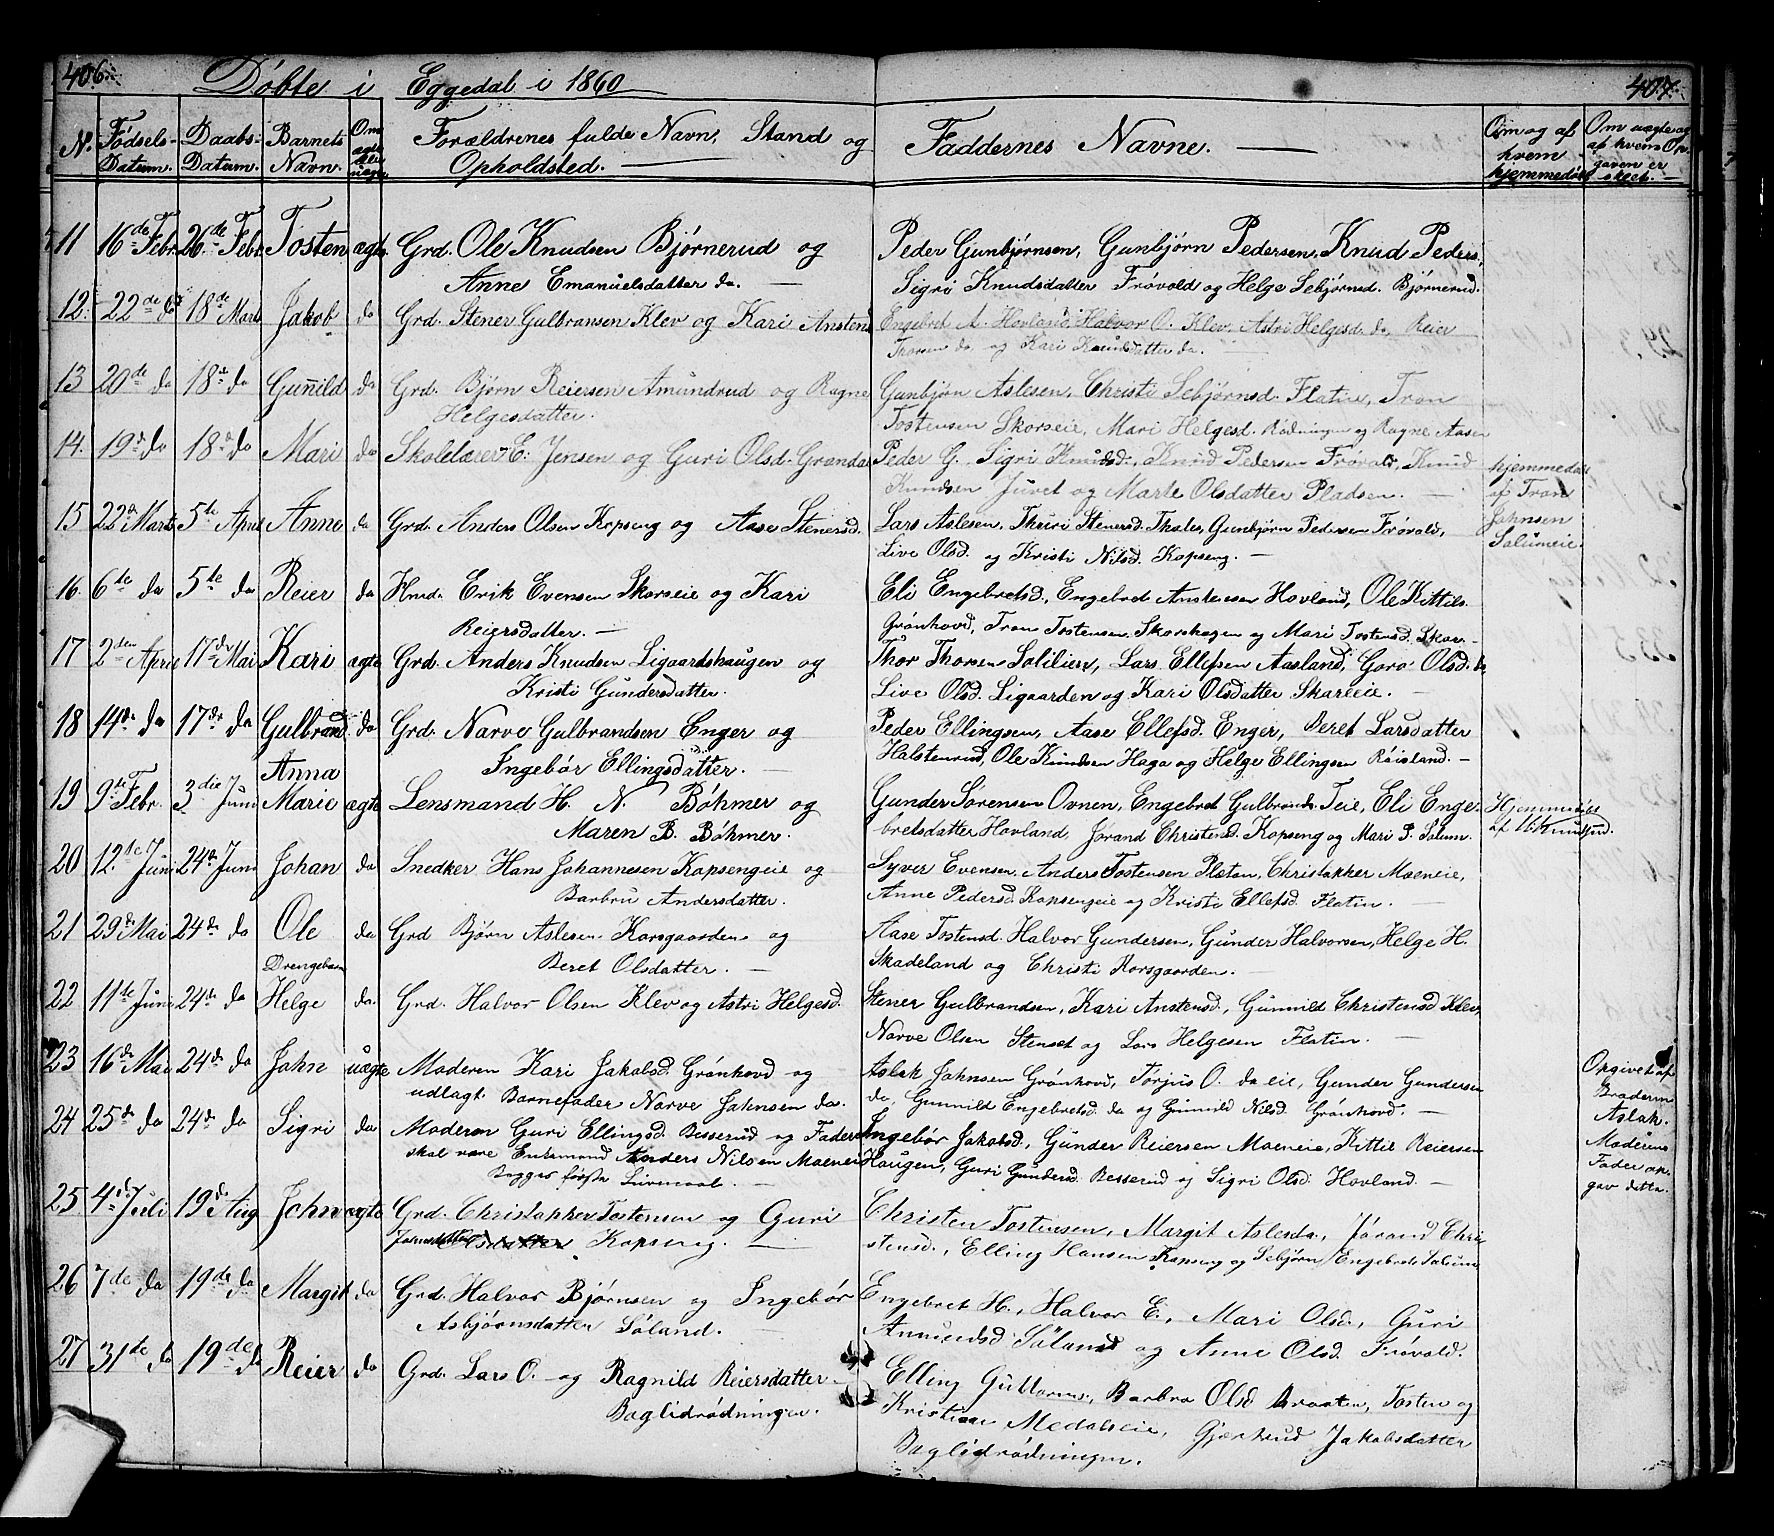 406. Døbte i Eggedal i 1860 407.
N. Fødsels-Datum. Daabs-Datum. Barnets Navn. Om ægte eller uægte Forældrenes fulde Navn, Stand og Opholdsted. Faddernes Navne. Om og af hvem hjemmedøbt Om uægte og af hvem Opgaven er skeet.
11 16de Febr. 26de Febr. Tosten ægte Grd. Ole Knudsen Bjørnerud og Peder Gunbjørnsen, Gunbjørn Pedersen, Knud Peders.
Anne Emanuelsdatter do. Sigri Knudsdatter Frøvold og Helge Sebjørnsd. Bjørnerud.
12. 22de do 18de Marts Jakob do Grd. Stener Gulbransen Klev og Kari Anstend Engebret A. Hovland, Halvor O. Klev, Astri Helgesd. do, Reier
Thorsen do og Kari Knudsdatter do.
13 20de do 18de do Gunild do Grd. Bjørn Reiersen Amundrud og Ragne Gunbjørn Aslesen, Christi Sebjørnsd. Flatin, Tron
Helgesdatter. Tostensen Skorseie, Mari Helgesd. Rødningen og Ragne Aasen
14. 19de do 18de do Mari do Skolelærer E. Jensen og Guri Olsd. Grandas Peder G. Sigri Knudsd., Knud Pedersen Frøvold, Knud hjemmedøbt
Knudsen Juvet og Marte Olsdatter Pladsen. af Tron
15 22de Marts 5te April Anne do Grd. Anders Olsen Kopseng og Aase Stenersd. Lars Aslesen, Thuri Stenersd. Thales, Gunbjørn Pedersen Frøvold, Johnsen
Live Olsd. og Kristi Nilsd. Kopseng. Solumeie.
16. 6te do 5te do Reier do Hmd. Erik Evensen Skorseie og Kari Eli Engebretsd., Engebret Anstensen Hovland, Ole Kittils.
Reiersdatter. Grønhovd, Tron Tostensen, Skorshagen og Mari Tostensd. Skor.
17 2den April 17de Mai Kari ægte Grd. Anders Knudsen Ligaardshaugen og Thor Thorsen Solilien, Lars Ellefsen Aasland, Goro Olsd. do
Kristi Gundersdatter. Live Olsd. Ligaarden og Kari Olsdatter Skareeie.
18 14de do 17de do Gulbrand do Grd. Narve Gulbrandsen Enger og Peder Ellingsen, Aase Ellefsd. Enger, Beret Larsdatter
Ingebør Ellingsdatter. Halstenrud, Ole Knudsen Haga og Helge Ellingsen Røisland.
19 9de Febr. 3die Juni Anna Marie ægte Lensmand H. N. Bøhmer og Gunder Sørensen Ovnen, Engebret Gulbrands. Teie, Eli Enge- Hjemmedøbt
Maren B. Bøhmer. bretsdatter Hovland Jørand Christensd. Kopseng og Mari P. Solum. af Knudsen.
20 12te Juni 24de Juni Johan do Snedker Hans Johannesen Kopsengeie og Syver Evensen, Anders Tostensen Plætan, Christopher Moeneie,
Barbru Andersdatter. Anne Pedersd. Kopsengeie og Kristi Ellefsd. Flatin.
21 29de Mai 24de do Ole do Grd Bjørn Aslesen Korsgaarden og Aase Tostensd. Halvor Gundersen, Gunder Halvorsen, Helge H.
Drengebarn Beret Olsdatter. Skadeland og Christi Korsgaarden.
22 11te Juni 24de do Helge do. Grd. Halvor Olsen Klev og Astri Helgesd. Stener Gulbrandsen, Kari Anstensd., Gunnild Christensd. Klev,
Narve Olsen Stenset og Lars Helgesen Flatin.
23 16de Mai 24de do John uægte Moderen Kari Jakobsd. Grønhovd og Aslak Johnsen Grønhovd, Torjus O. do eie, Gunder Gundersen Opgivet af
udlagt Barnefader Narve Johnsen do. do, Gunnild Engebretsd. do og Gunnild Nilsd. Grønhovd. Broderen
24 25de do 24de do Sigri do Moderen Guri Ellingsd. Besserud og Fader Ingebør Jakobsd., Gunder Reiersen Moeneie, Kittil Reiersen Aslak.
skal være Enkemand Anders Nilsen Moeneie Haugen, Guri Gundersd. Besserud og Sigri Olsd. Hovland. Moderens
Begges første Leiermaal. Fader op-
gav dette.
25 4de Juli 19de Aug John ægte Grd. Christopher Tostensen og Guri Christen Tostensen, Margit Aslesda., Jørand Chri-
Johnsdatter Olsdatter Kopseng. stensd., Elling Hansen Kopseng og Sebjørn Engebrets Solum
26 7de do 19de do Margit do Grd. Halvor Bjørnsen og Ingebør Engebret H., Halvor E., Mari Olsd., Guri
Asbjørnsdatter Søland. Amundsd. Søland og Anne Olsd. Frøvold.
27 31te do 19de do Reier do Grd. Lars O. og Ragnild Reiersdatter Elling Guttorms., Barbro Olsd Braaten, Tosten og
Baglidrødningen. Kristine Medalseie, Gjertrud Jakobsdatter
Baglidrødningen.